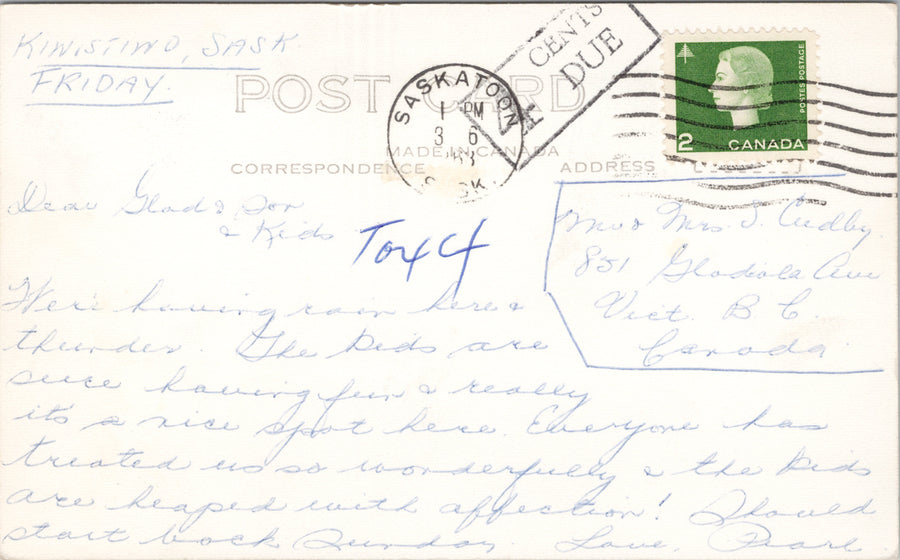 KINISTINO, SASK
FRIDAY.
POST CARD
MADE IN CANADA
CORRESPONDENCE
ADDRESS
SASKATOON
1 PM
3 6
SASK.
4 CENTS
DUE
POSTES POSTAGE
2 CANADA
Dear Glad & Don
& Kids
To 4 4
Mr & Mrs. D. Cudby.
851 Gladiola Ave
Vict. B. C.
Canada.
We're having rain here &
thunder. The kids are
sure having fun & really
it's a nice spot here. Everyone has
treated us so wonderfully & the kids
are heaped with affection! Should
start back Sunday. Love